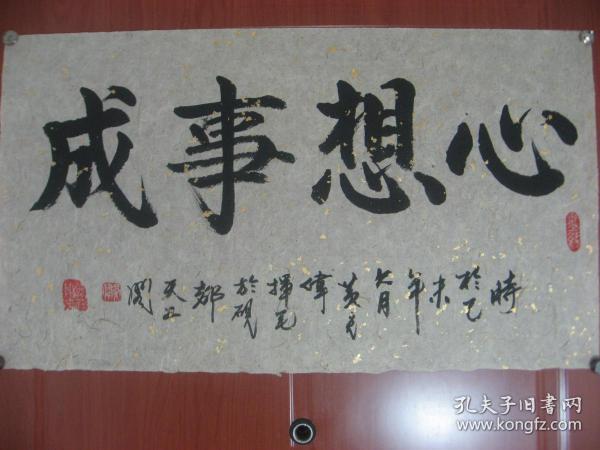 心想事成
時
於乙
未
年
六月
黄
揮毛
於硯
都
天
閣
孔夫子旧書网
www.kongfz.com